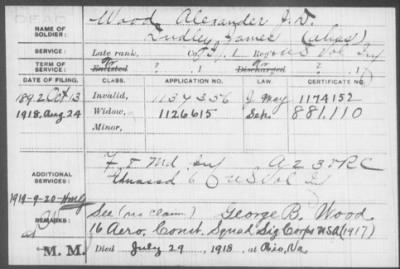 NAME OF SOLDIER: Wood, Alexander J. D.
Dudley, James (alias)
SERVICE: Late rank, Co. G, 1 Reg't U S Vol Inf
TERM OF SERVICE: Enlisted ? , 1 Discharged ? , 1
DATE OF FILING. CLASS. APPLICATION NO. LAW. CERTIFICATE NO.
1892 Oct 13 Invalid, 1137356 J May 1174152
1918, Aug 24 Widow, 1126615 881.110
Minor,
ADDITIONAL SERVICES: F 5 Md Inf G 2 3 V R C
Unassd 6 U S Vol Inf
1919-9-20
REMARKS: See (no claim) George B. Wood
16 Aero. Const. Squad Sig Corps USA (1917)
M. M. Died July 29, 1918, at Rio, Va